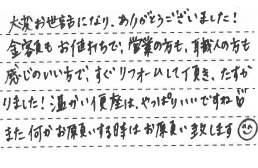 大変お世話になり、ありがとうございました!
金額もお値打ちで、営業の方も、職人の方も
感じのいい方で、すぐリフォームして頂き、たすか
りました!温かい便座は、やっぱりいいですね
また何かお願いする時はお願い致します